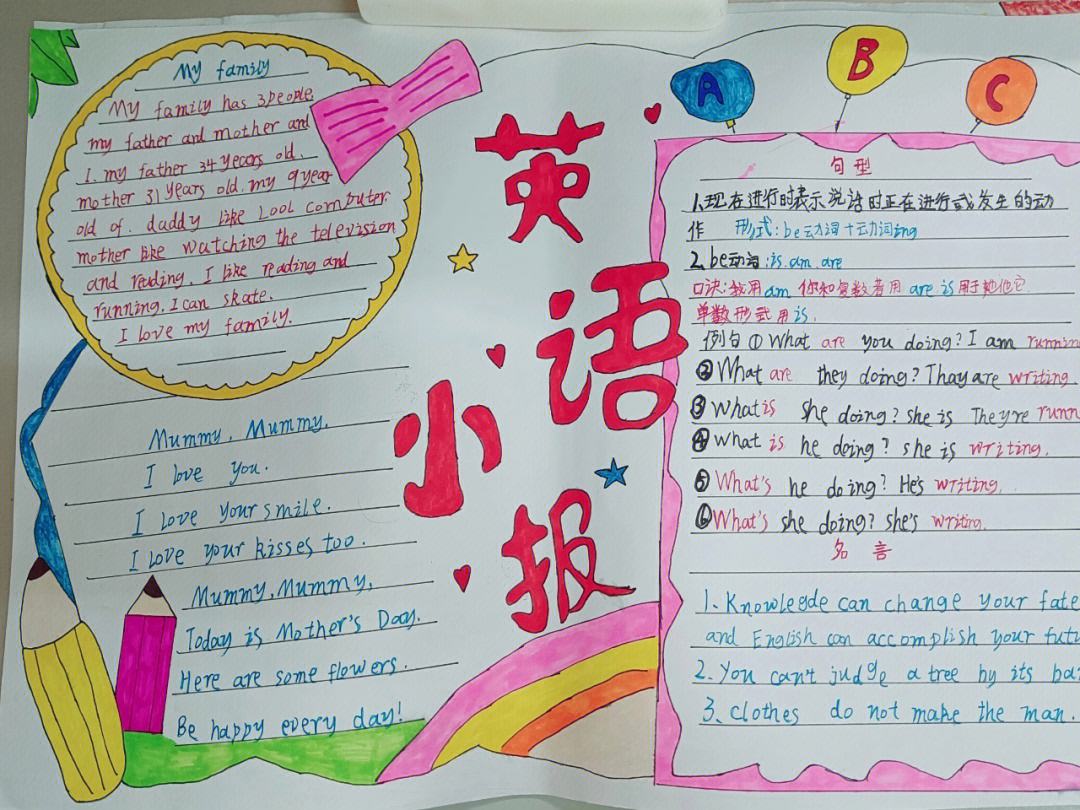 My family
My family has 3 people,
my father and mother and
I. my father 34 years old.
mother 31 years old. my 9 year
old of. daddy like Lool computer.
mother like watching the television
and reading. I like reading and
running. I can skate.
I love my family.
Mummy, Mummy,
I love you.
I love your smile.
I love your kisses too.
Mummy, Mummy,
Today is Mother's Day.
Here are some flowers.
Be happy every day!
英
语
小
报
A B C
句型
1.现在进行时表示说话时正在进行或发生的动
作 形式:be动词+动词ing
2.be动词:is.am.are
口诀:我用am 你和复数者用 are is用于她他它
单数形式用is.
例句① What are you doing? I am runnin
②What are they doing? Thay are writing.
③What is she doing? she is They're runn
④what is he doing? she is writing.
⑤What's he doing? He's writing.
⑥What's she doing? she's writing.
名言
1. Knowlegde can change your fate
and English can accomplish your futu
2. You can't judge a tree by its ba
3. Clothes do not make the man.